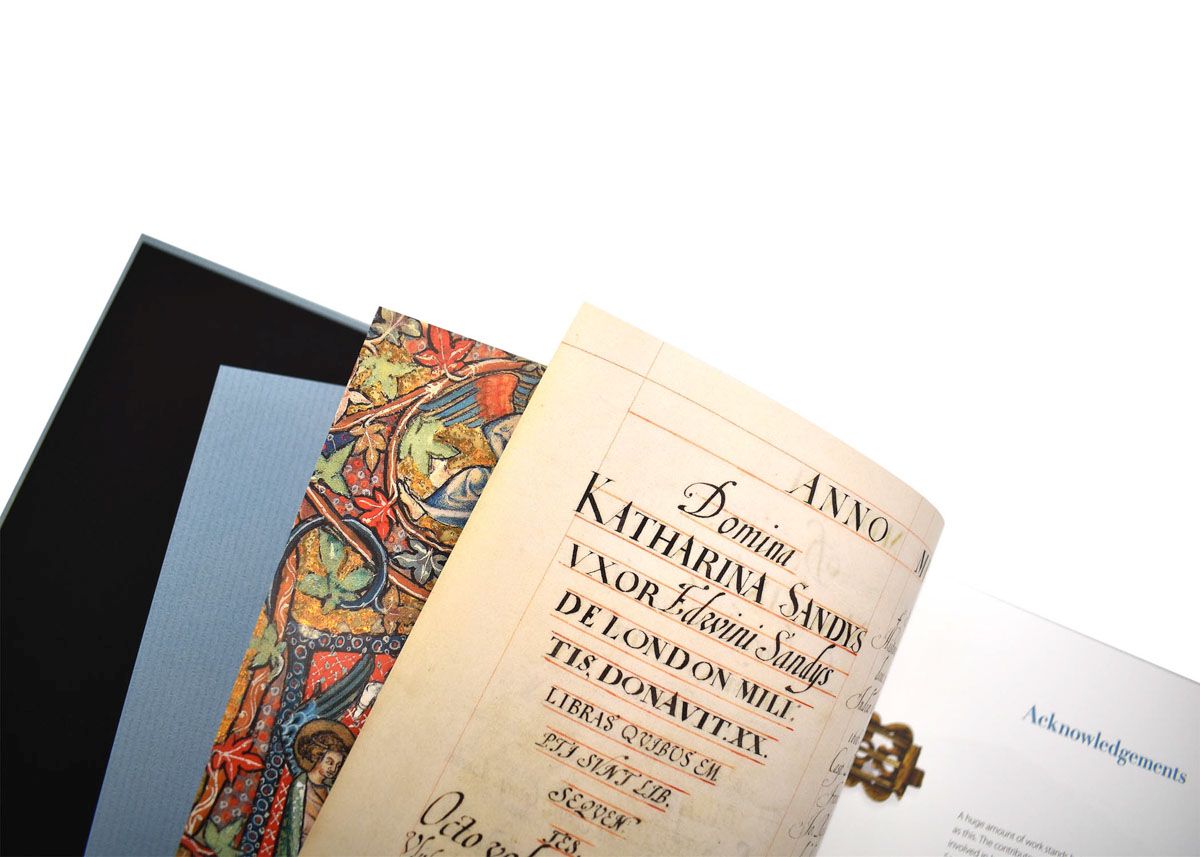 ANNO
Domina
KATHARINA SANDYS
VXOR Edwini Sandys
DE LONDON MILI:
TIS, DONAVIT.XX.
LIBRAS QVIBUS EM
PTI SVNT LIB.
SEQVEN.
TES.
Octo
Acknowledgements
A huge amount of work stands
as this. The
involved in